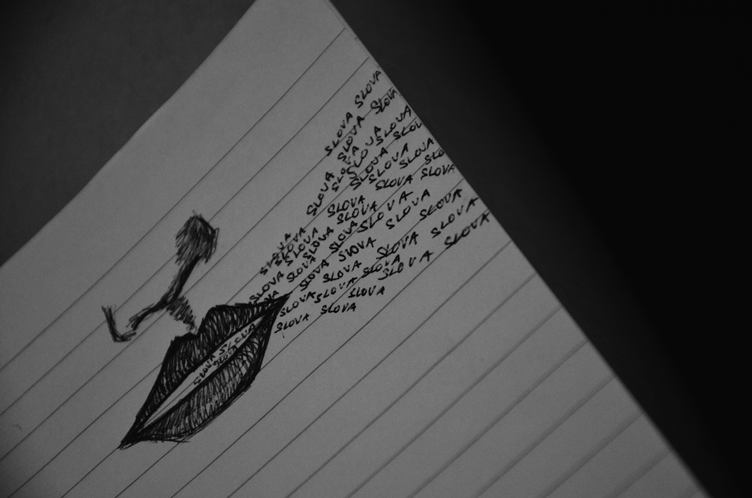 SLOVA SLOVA
SLOVA SLOVA
SLOVA SLOVA SLOVA
SLOVA SLOVA SLOVA
SLOVA SLOVA SLOVA SLOVA
SLOVA SLOVA SLOVA SLOVA
SLOVA SLOVA SLOVA SLOVA
SLOVA SLOVA SLOVA SLOVA
SLOVA SLOVA SLOVA SLOVA
SLOVA SLOVA SLOVA SLOVA
SLOVA SLOVA
SLOVA SLOVA
SLOVA